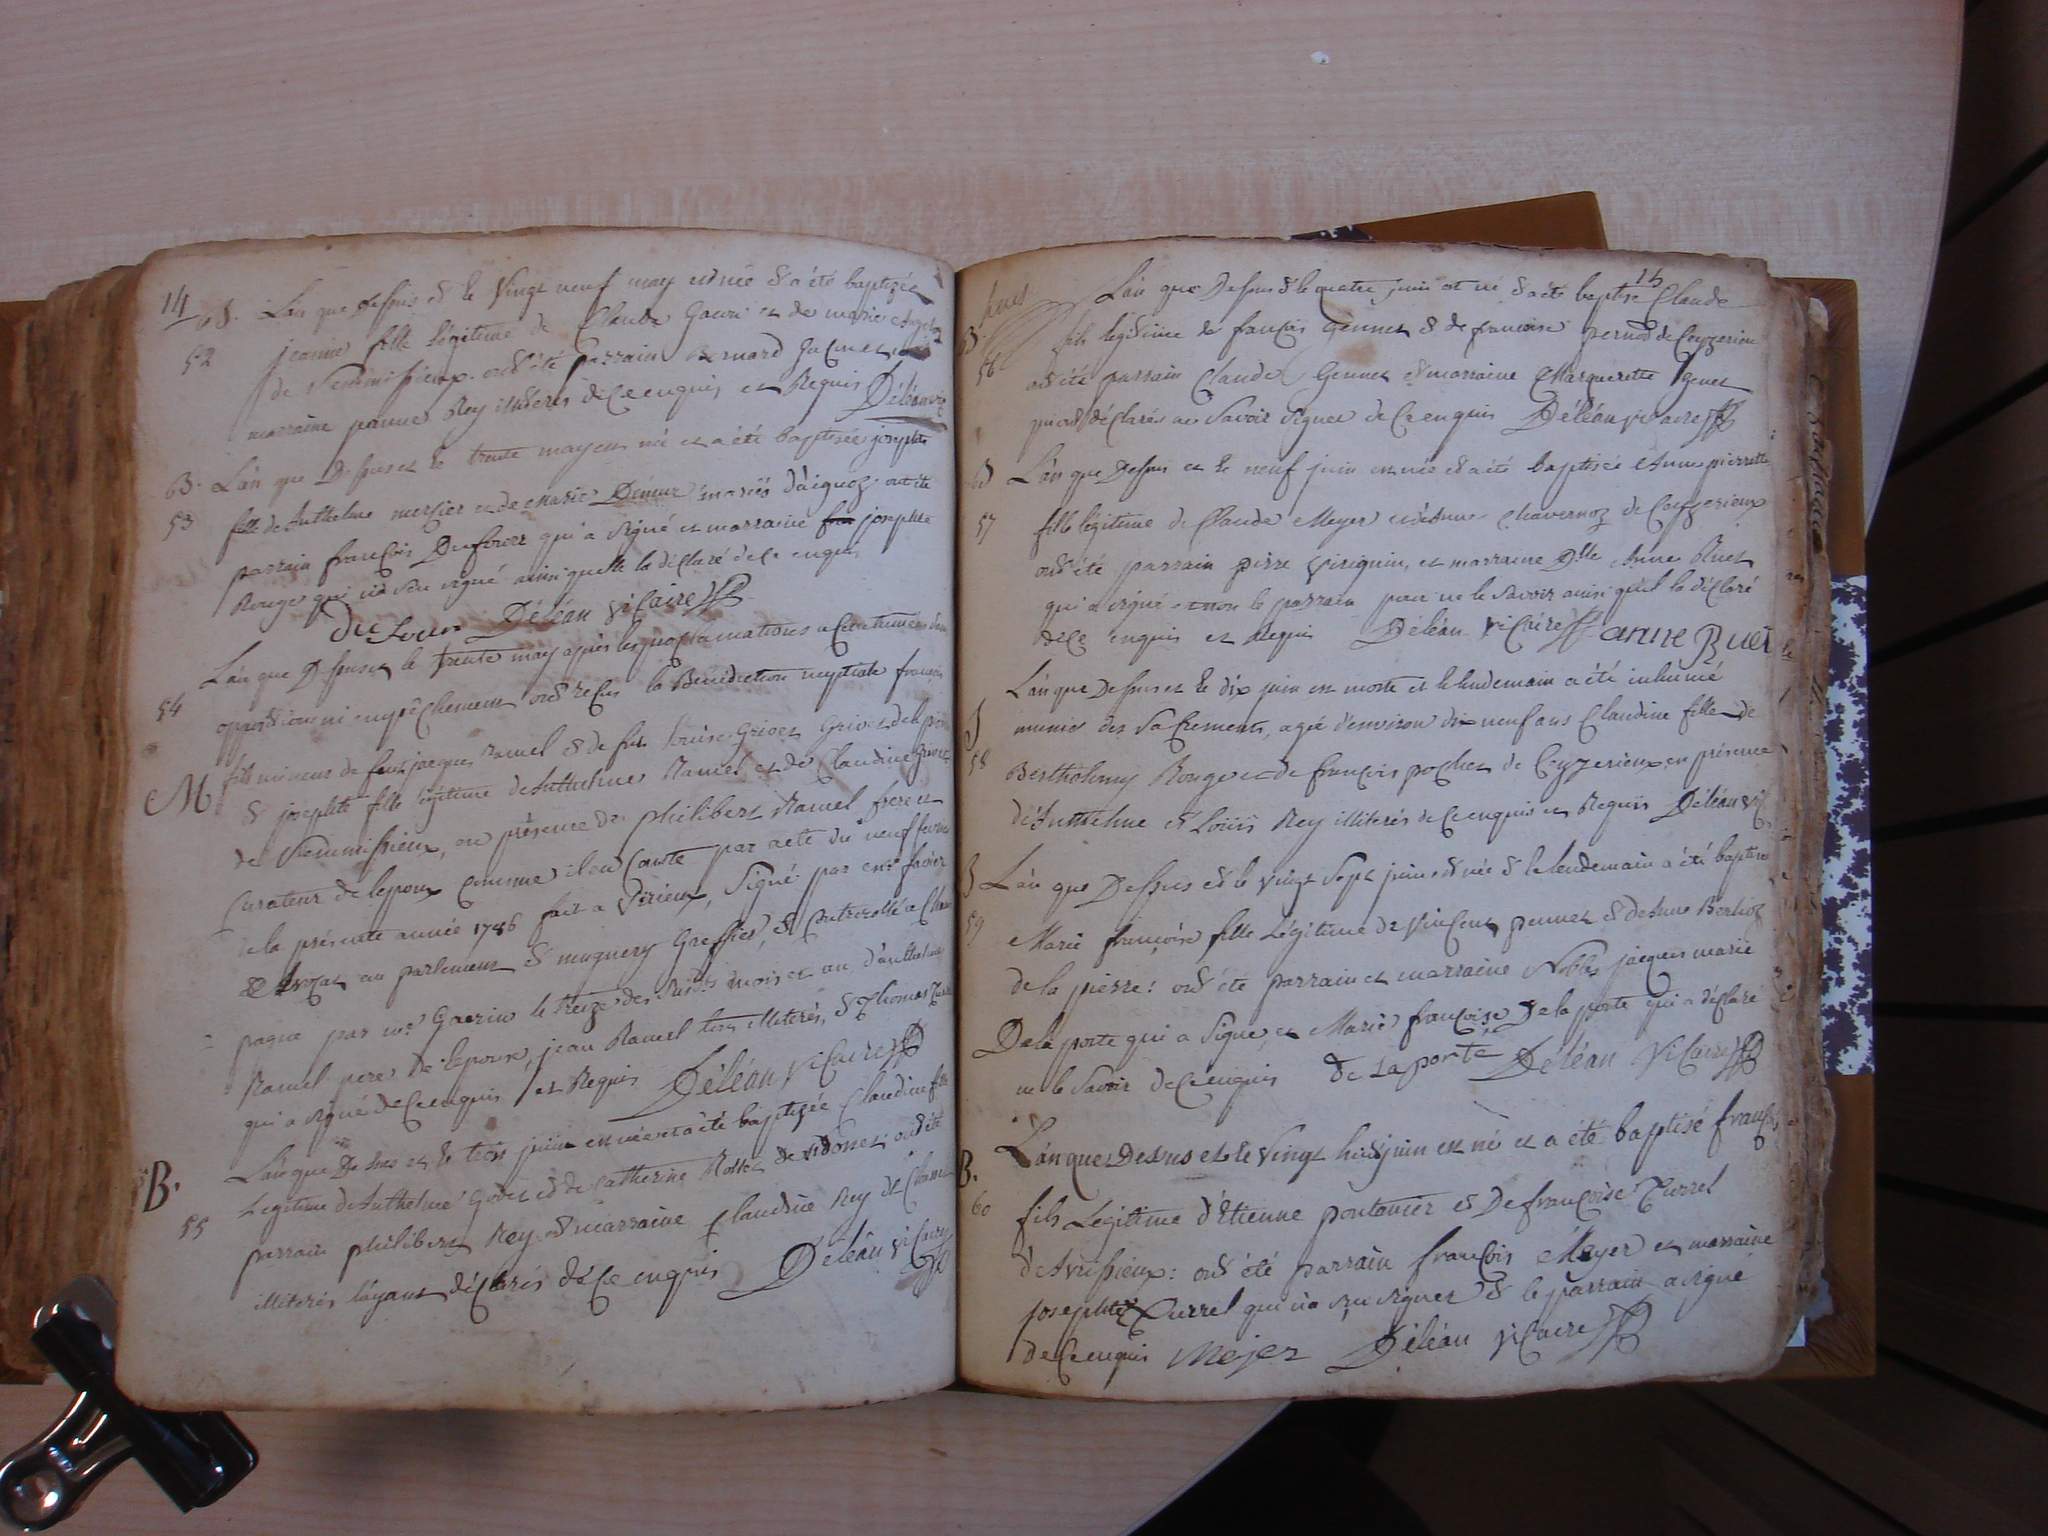 14
B. L'an que Dessus & le vingt neuf may est née & a été baptizée
52 jeanne fille légitime de Claude & de marie
de vemmissieux. ont été parrain Bernard &
marraine Rey illiterés de ce enquis et Requis Déléan vic
B. L'an que Dessus et le trente may est née et a été baptisée josephte
53 fille de Anthelme mercier et de Marie mariés ont été
parrain françois Dufour qui a signé et marraine josephte
Rouge qui n'a sçu signé ainsi quelle la déclaré de ce enquis
du four Déléan vicaire
L'an que Dessus et le trente may après les proclamations accoutumées
54 opposition ni empêchement ont reçus la Bénédiction nuptiale françois
M fils mineur de feu jacques Ramel & de Louise Grivet de la pierre
& josephte fille légitime de Anthelme Ramel et de Claudine
de vemmissieux, en présence de philibert Ramel frere et
Curateur de lepoux comme il en conste par acte du neuf
de la présente année 1786 fait a virieux, signé par
avocat au parlement & mugnery Greffier, & Controllé a Cham
pagne par mr Guerin le treize des susdits mois et an, d'anthelme
Ramel pere de lepouse, jean Ramel tous illiterés, & Thomas
qui a signé de ce enquis et Requis Déléan vicaire
B. L'an que Dessus et le trois juin est née et a été baptizée Claudine fille
55 Legitime de Anthelme Godet et de Catherine ont été
parrain philibert Rey & marraine Claudine Rey de
illiterés l'ayant déclarés de ce enquis Déléan vicaire
15
B. L'an que Dessus & le quatre juin est né & a été baptisé Claude
56 fils légitime de françois Gennet & de françoise pernod de Ceyzerieu
ont été parrain Claude Gennet & marraine Marguerette Genet
qui ont déclarés ne savoir signer de ce enquis Déléan vicaire
B L'an que Dessus et le neuf juin est née & a été baptisée Anne pierrette
57 fille légitime de Claude Meyer et de Anne Chavernoz de Ceyzerieux
ont été parrain pierre viviguin, et marraine Dlle Anne Buet
qui a signé et non le parrain pour ne le savoir ainsi qu'il la déclaré
de ce enquis et Requis Déléan vicaire anne Buet
L'an que Dessus et le dix juin est morte et le lendemain a été inhumé
S munie des sacrements, agée d'environ dix neuf ans Claudine fille de
58 Bertholomy Rouge et de françois pochet de Ceyzerieux, en présence
d'Anthelme et Loüis Rey illiterés de ce enquis et Requis Déléan vic
B L'an que Dessus & le vingt sept juin est née & le lendemain a été baptisée
59 Marie françoise fille Légitime de vincent pennet & de Anne Berlioz
de la pierre: ont été parrain et marraine Nobles jacques marie
De la porte qui a signé, et Marie françoise De la porte qui a déclaré
ne le savoir de ce enquis de La porte Déléan vicaire
L'an que Dessus et le vingt huit juin est né et a été baptisé françois
B.
60 fils Légitime d'Etienne pontanier et De françoise Currel
d'Avrissieux: ont été parrain françois Meyer et marraine
josephte Currel qui n'a sçu signer & le parrain a signé
de ce enquis Mejer Déléan vicaire